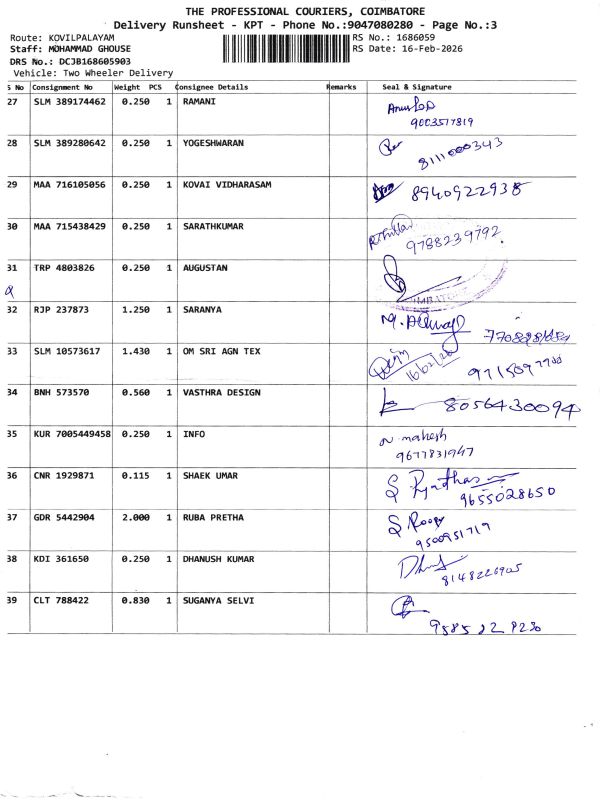 THE PROFESSIONAL COURIERS, COIMBATORE
Delivery Runsheet - KPT - Phone No.:9047080280 - Page No.:3
Route: KOVILPALAYAM RS No.: 1686059
Staff: MOHAMMAD GHOUSE RS Date: 16-Feb-2026
DRS No.: DCJB168605903
Vehicle: Two Wheeler Delivery
S No Consignment No Weight PCS Consignee Details Remarks Seal & Signature
27 SLM 389174462 0.250 1 RAMANI
9003577819
28 SLM 389280642 0.250 1 YOGESHWARAN
8111000343
29 MAA 716105056 0.250 1 KOVAI VIDHARASAM
8940922938
30 MAA 715438429 0.250 1 SARATHKUMAR
9788239792
31 TRP 4803826 0.250 1 AUGUSTAN
32 RJP 237873 1.250 1 SARANYA
33 SLM 10573617 1.430 1 OM SRI AGN TEX
16/02/26
34 BNH 573570 0.560 1 VASTHRA DESIGN
8056430094
35 KUR 7005449458 0.250 1 INFO
N mahesh
9677831947
36 CNR 1929871 0.115 1 SHAEK UMAR
9655028650
37 GDR 5442904 2.000 1 RUBA PRETHA
9500951719
38 KDI 361650 0.250 1 DHANUSH KUMAR
8148226905
39 CLT 788422 0.830 1 SUGANYA SELVI